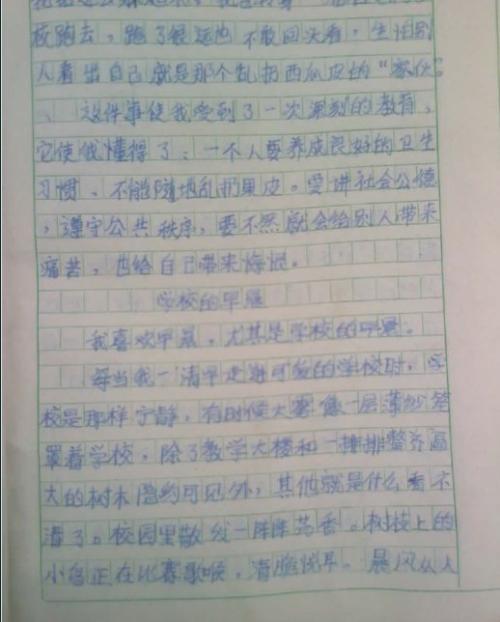 夜跑去，跑了很远也不敢回头看，生怕别
人看出自己就是那个乱扔西瓜皮的“家伙”
、这件事使我受到了一次深刻的教育，
它使我懂得了：一个人要养成良好的卫生
习惯、不能随地乱扔果皮。要讲社会公德
，遵守公共秩序，要不然就会给别人带来
痛苦，也给自己带来悔恨。
学校的早晨
我喜欢早晨，尤其是学校的早晨。
每当我一清早走进可爱的学校时，学
校是那样宁静，有时候大雾像一层薄纱笼
罩着学校，除了教学大楼和一排排整齐高
大的树木隐约可见外，其他就是什么看不
清了。校园里散发一阵阵芳香。树枝上的
小鸟正在比赛歌喉，清脆悦耳。晨风从人